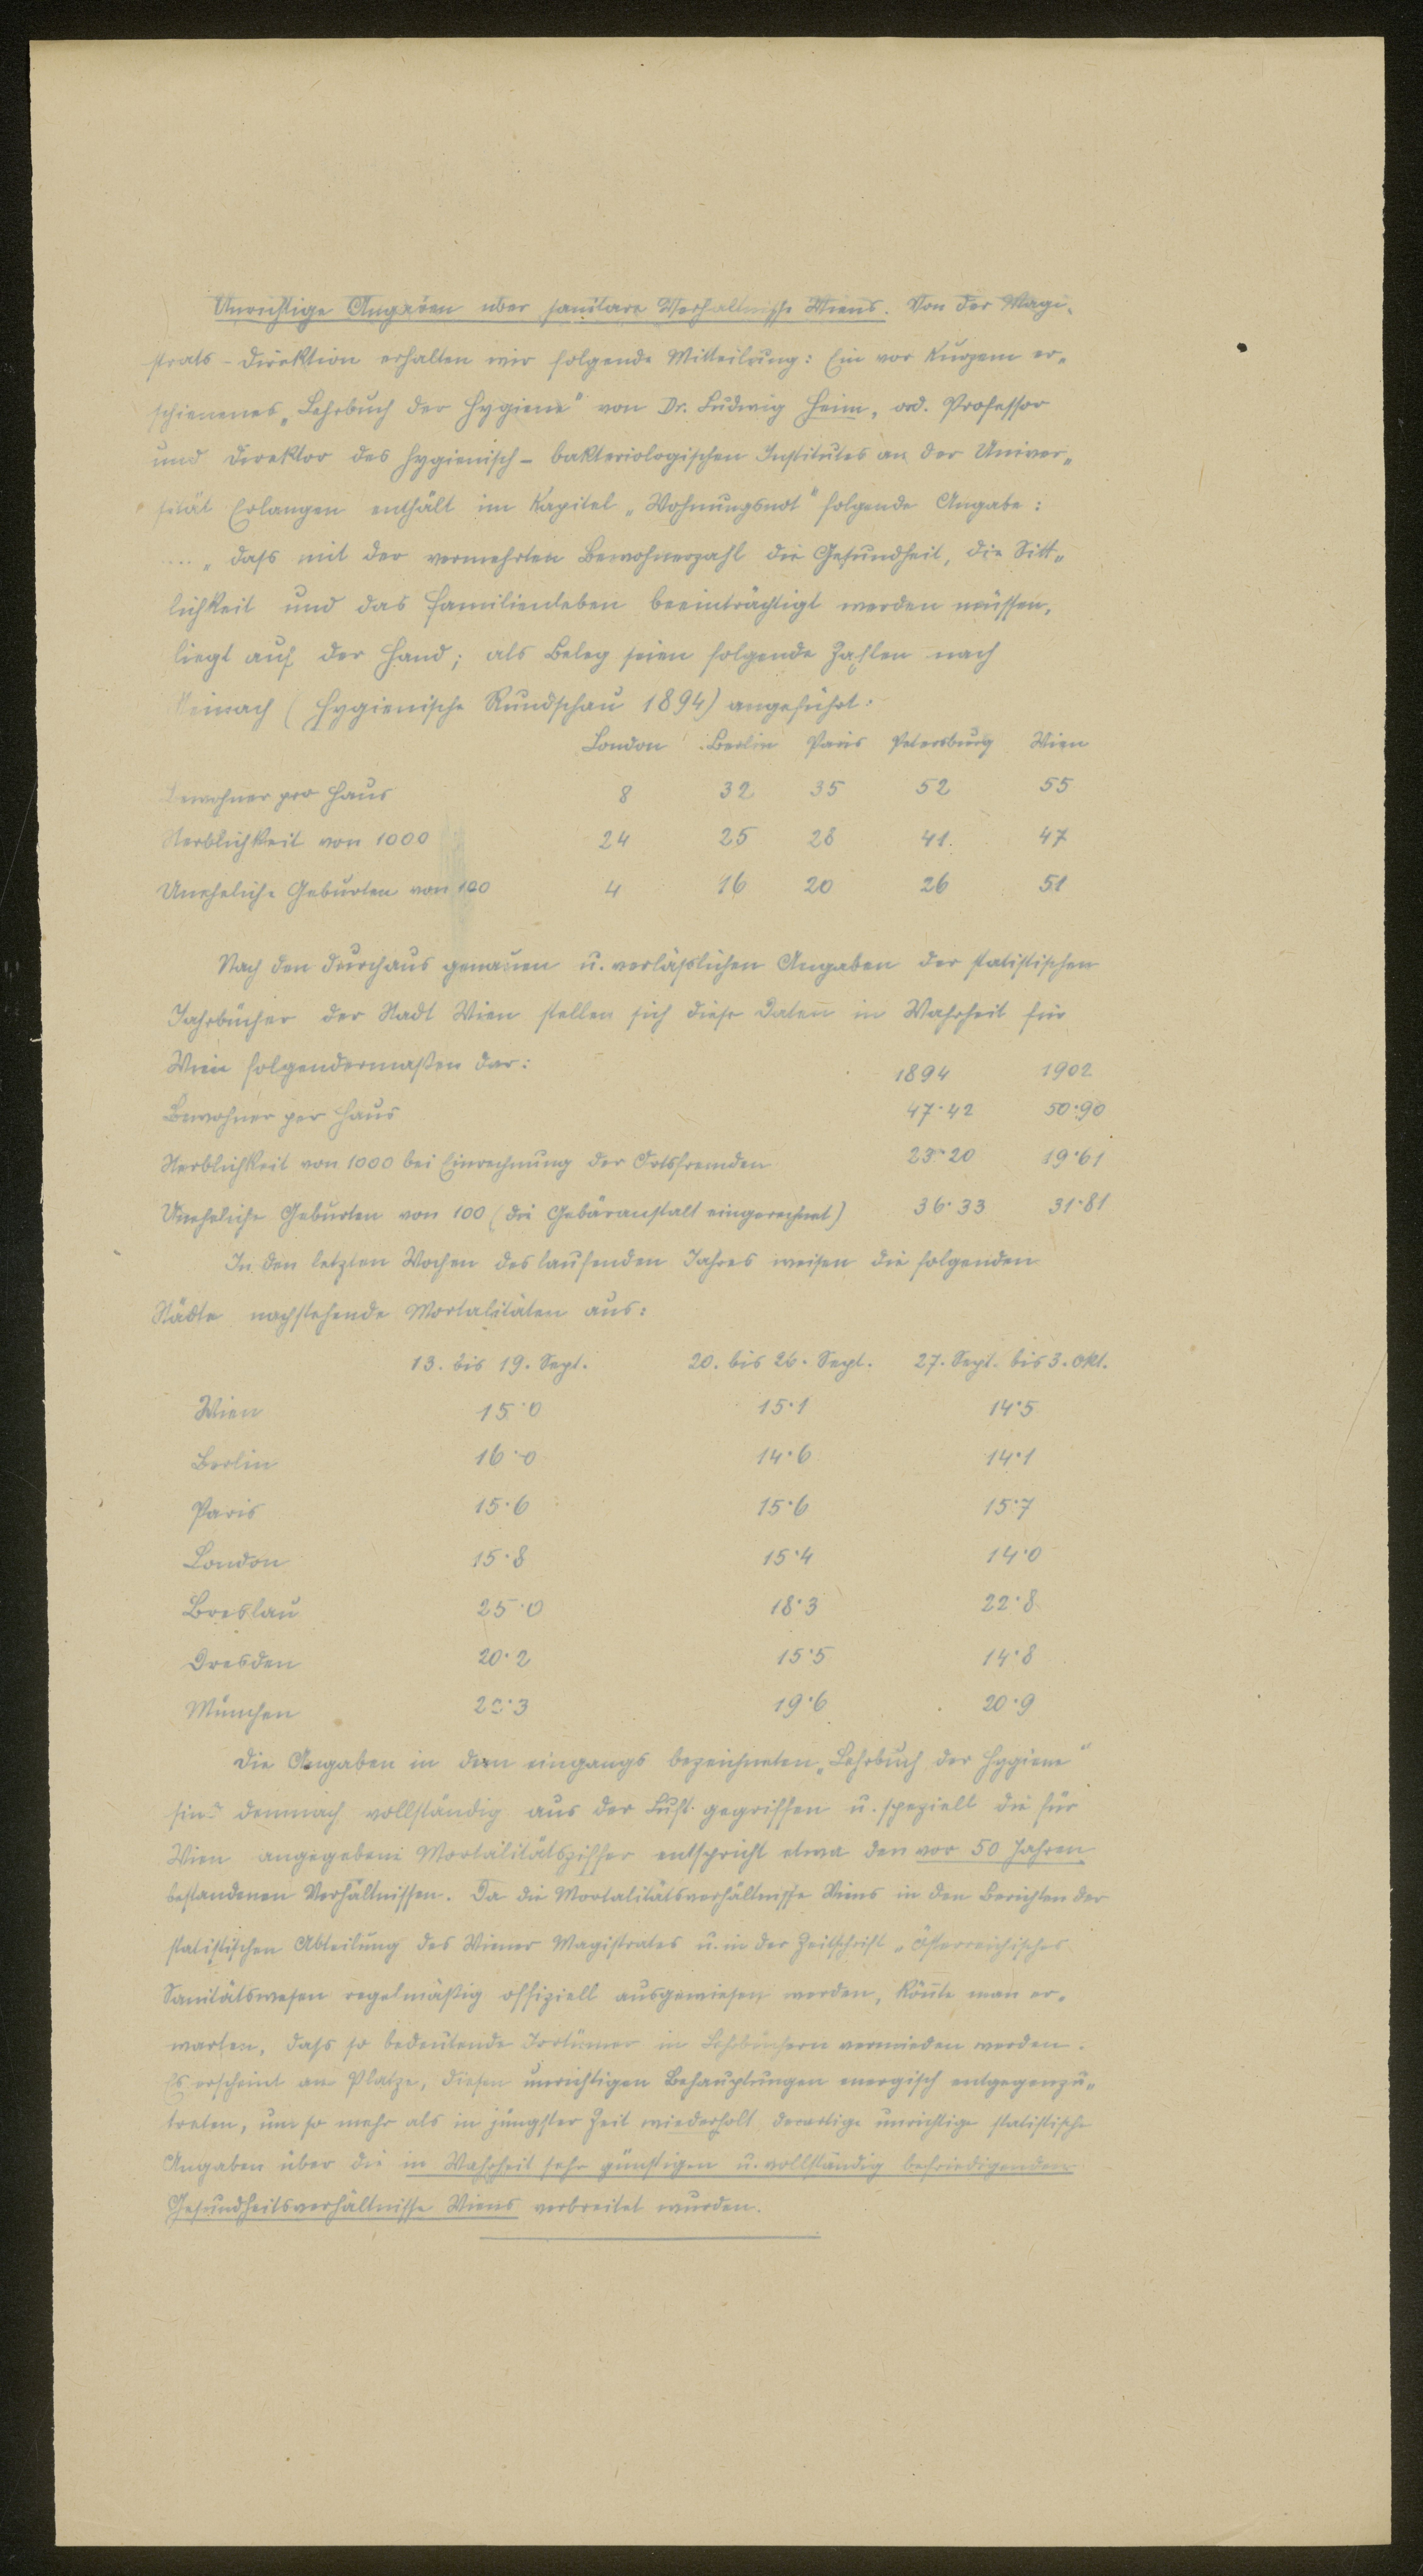 Unrichtige Angaben über sanitäre Verhältnisse Wiens. Von der Magi-
strats-Direktion erhalten wir folgende Mitteilung: Ein vor Kurzem er-
schienenes „Lehrbuch der Hygiene" von Dr. Ludwig Heim, ord. Professor
und Direktor des hygienisch-bakteriologischen Institutes an der Univer-
sität Erlangen enthält im Kapitel „Wohnungsnot" folgende Angabe:
... „dass mit der vermehrten Bewohnerzahl die Gesundheit, die Sitt-
lichkeit und das Familienleben beeinträchtigt werden müssen,
liegt auf der Hand; als Beleg seien folgende Zahlen nach
(Hygienische Rundschau 1894) angeführt:
London Berlin Paris Petersburg Wien
Bewohner pro Haus 8 32 35 52 55
Sterblichkeit von 1000 24 25 28 41 47
Uneheliche Geburten von 100 4 16 20 26 51
Nach den durchaus genauen u. verläßlichen Angaben der statistischen
Jahrbücher der Stadt Wien stellen sich diese Daten in Wahrheit für
Wien folgendermaßen dar: 1894 1902
Bewohner per Haus 47·42 50·90
Sterblichkeit von 1000 bei Einrechnung der Ortsfremden 23·20 19·61
Uneheliche Geburten von 100 (die Gebäranstalt eingerechnet) 36·33 31·81
In den letzten Wochen des laufenden Jahres weisen die folgenden
Städte nachstehende Mortalitäten aus:
13. bis 19. Sept. 20. bis 26. Sept. 27. Sept. bis 3. Okt.
Wien 15·0 15·1 14·5
Berlin 16·0 14·6 14·1
Paris 15·6 15·6 15·7
London 15·8 15·4 14·0
Breslau 25·0 18·3 22·8
Dresden 20·2 15·5 14·8
München 20·3 19·6 20·9
Die Angaben in dem eingangs bezeichneten „Lehrbuch der Hygiene"
sind demnach vollständig aus der Luft gegriffen u. speziell die für
Wien angegebene Mortalitätsziffer entspricht etwa den vor 50 Jahren
bestandenen Verhältnissen. Da die Mortalitätsverhältnisse Wiens in den Berichten der
statistischen Abteilung des Wiener Magistrates u. in der Zeitschrift „Österreichisches
Sanitätswesen regelmäßig offiziell ausgewiesen werden, könnte man er-
warten, dass so bedeutende Irrtümer in Lehrbüchern vermieden werden.
Es erscheint am Platze, diesen unrichtigen Behauptungen energisch entgegenzu-
treten, um so mehr als in jüngster Zeit wiederholt derartige unrichtige statistische
Angaben über die in Wahrheit sehr günstigen u. vollständig befriedigenden
Gesundheitsverhältnisse Wiens verbreitet wurden.